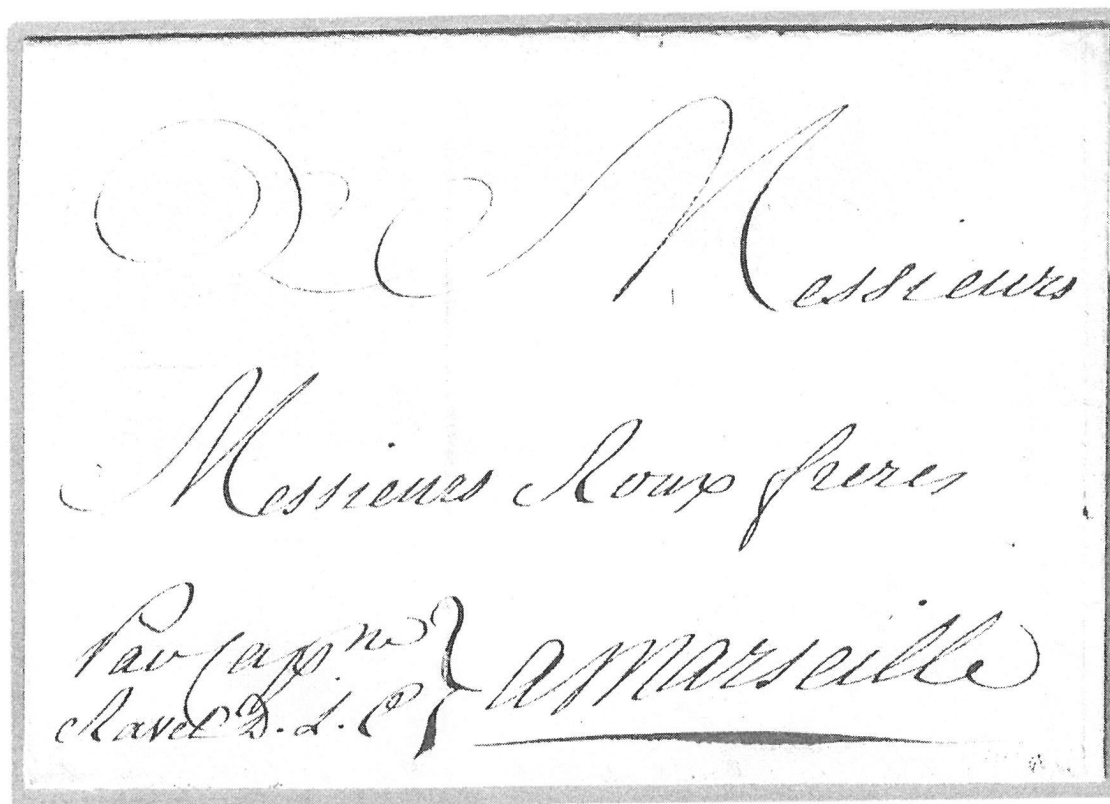 A Messieurs
Messieurs Roux freres
Par Cap.ne
Ravel D. L. C
a Marseille